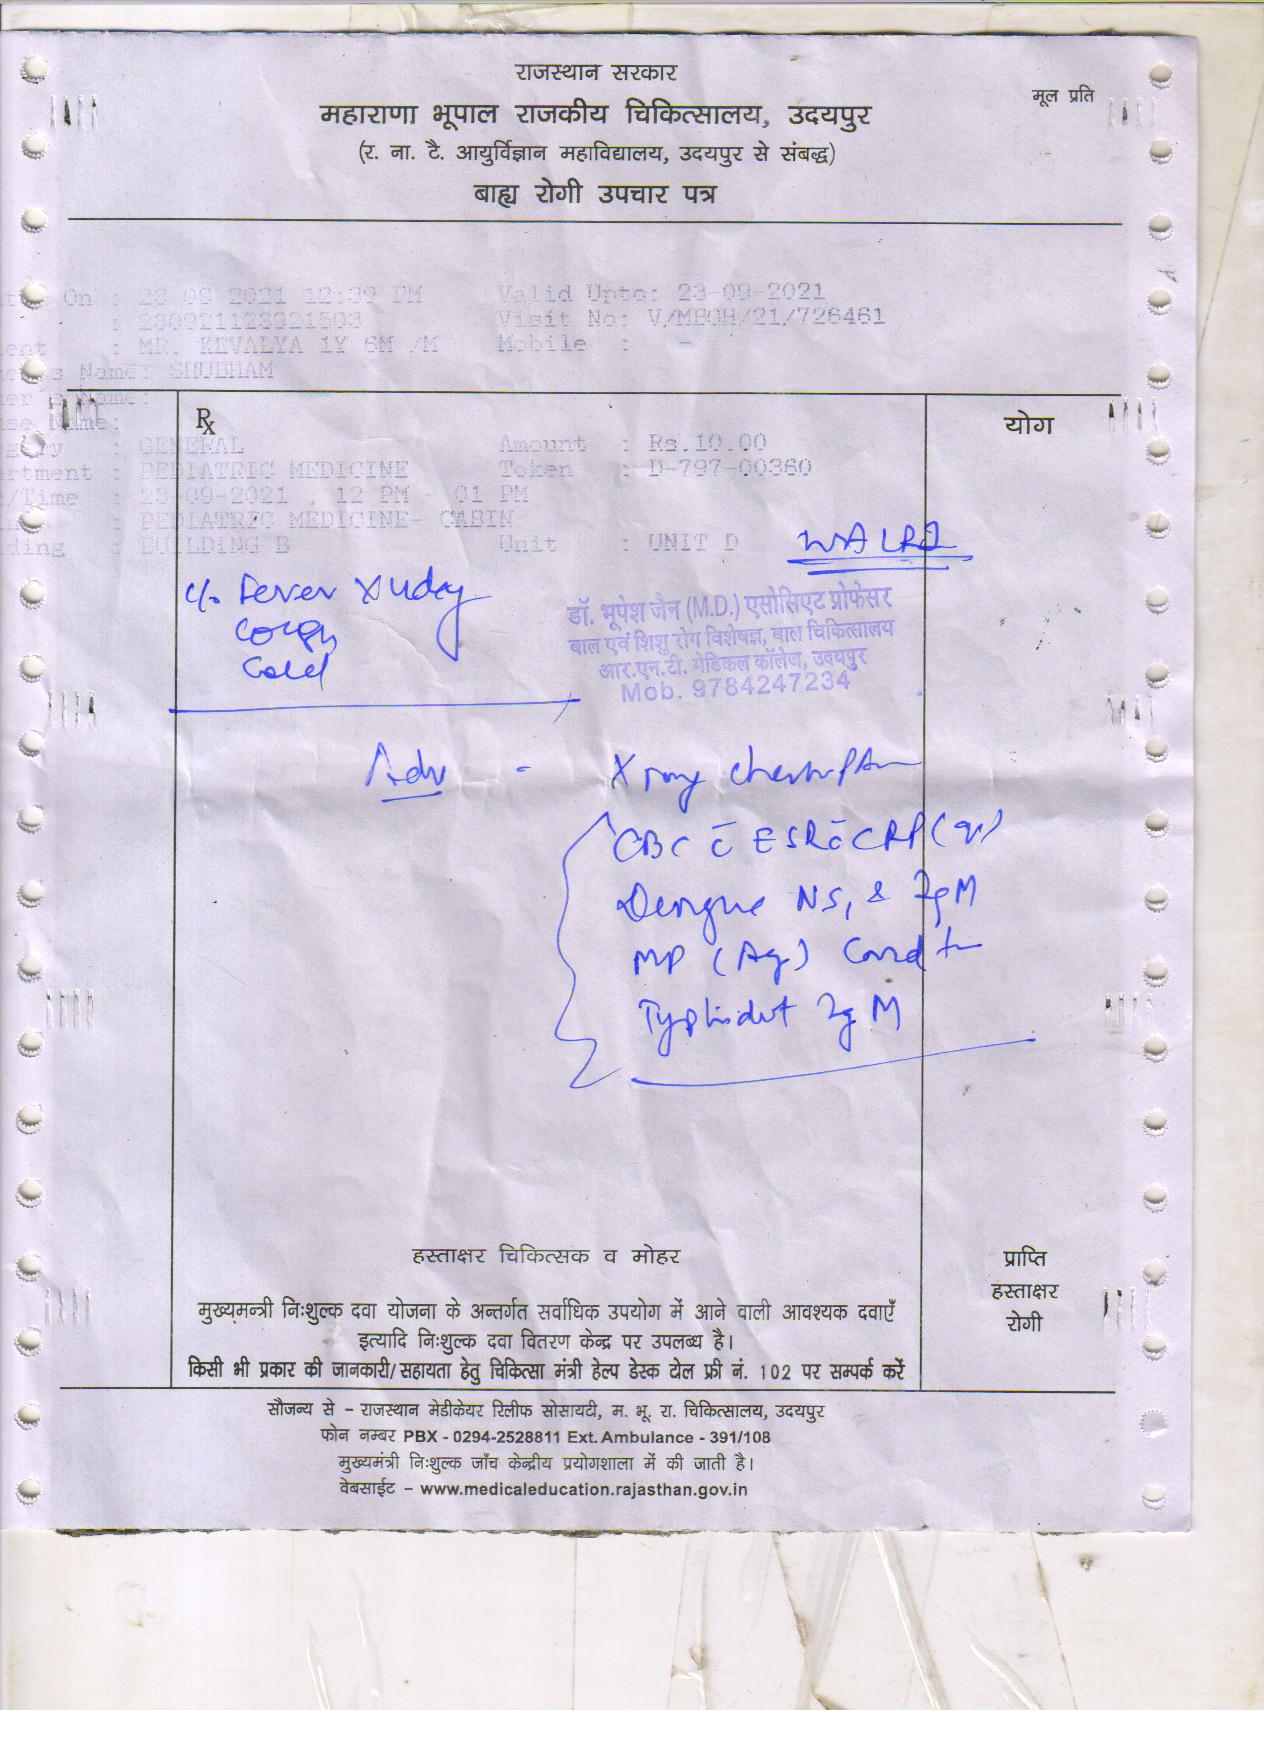 राजस्थान सरकार
मूल प्रति
महाराणा भूपाल राजकीय चिकित्सालय, उदयपुर
(र. ना. टै. आयुर्विज्ञान महाविद्यालय, उदयपुर से संबद्ध)
बाह्य रोगी उपचार पत्र
On : 23-09-2021 12:39 PM Valid Upto: 23-09-2021
: 230921123921503 Visit No: V/MBGH/21/726461
ent : MR. KEVALYA 1Y 6M /M Mobile : -
Name: SHUBHAM
er's Name:
se Name:
Rx
योग
gory : GENERAL Amount : Rs.10.00
rtment : PEDIATRIC MEDICINE Token : D-797-00360
/Time : 23-09-2021 , 12 PM - 01 PM
: PEDIATRIC MEDICINE- CABIN
ding : BUILDING B Unit : UNIT D
c/o Fever X 4 day
Cough
Cold
डॉ. भूपेश जैन (M.D.) एसोसिएट प्रोफेसर
बाल एवं शिशु रोग विशेषज्ञ, बाल चिकित्सालय
आर.एन.टी. मेडिकल कॉलेज, उदयपुर
Mob. 9784247234
Adv - X ray chest PA
CBC c̄ ESR c̄ CRP (q)
Dengue NS1 & IgM
MP (Ag) Card
Typhidot IgM
हस्ताक्षर चिकित्सक व मोहर
प्राप्ति
हस्ताक्षर
रोगी
मुख्यमन्त्री निःशुल्क दवा योजना के अन्तर्गत सर्वाधिक उपयोग में आने वाली आवश्यक दवाएँ
इत्यादि निःशुल्क दवा वितरण केन्द्र पर उपलब्ध है।
किसी भी प्रकार की जानकारी/सहायता हेतु चिकित्सा मंत्री हेल्प डेस्क टोल फ्री नं. 102 पर सम्पर्क करें
सौजन्य से – राजस्थान मेडीकेयर रिलीफ सोसायटी, म. भू. रा. चिकित्सालय, उदयपुर
फोन नम्बर PBX - 0294-2528811 Ext. Ambulance - 391/108
मुख्यमंत्री निःशुल्क जाँच केन्द्रीय प्रयोगशाला में की जाती है।
वेबसाईट – www.medicaleducation.rajasthan.gov.in